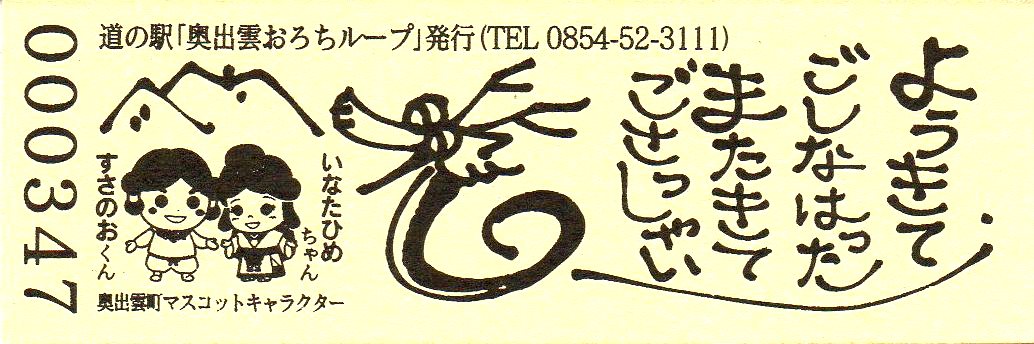 道の駅「奥出雲おろちループ」発行(TEL 0854-52-3111)
000347
ようきて
ごしなはった
またきて
ごさっしゃい
いなたひめちゃん
すさのおくん
奥出雲町マスコットキャラクター